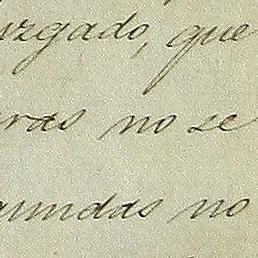 uzgado, que
ras no se
gundas no